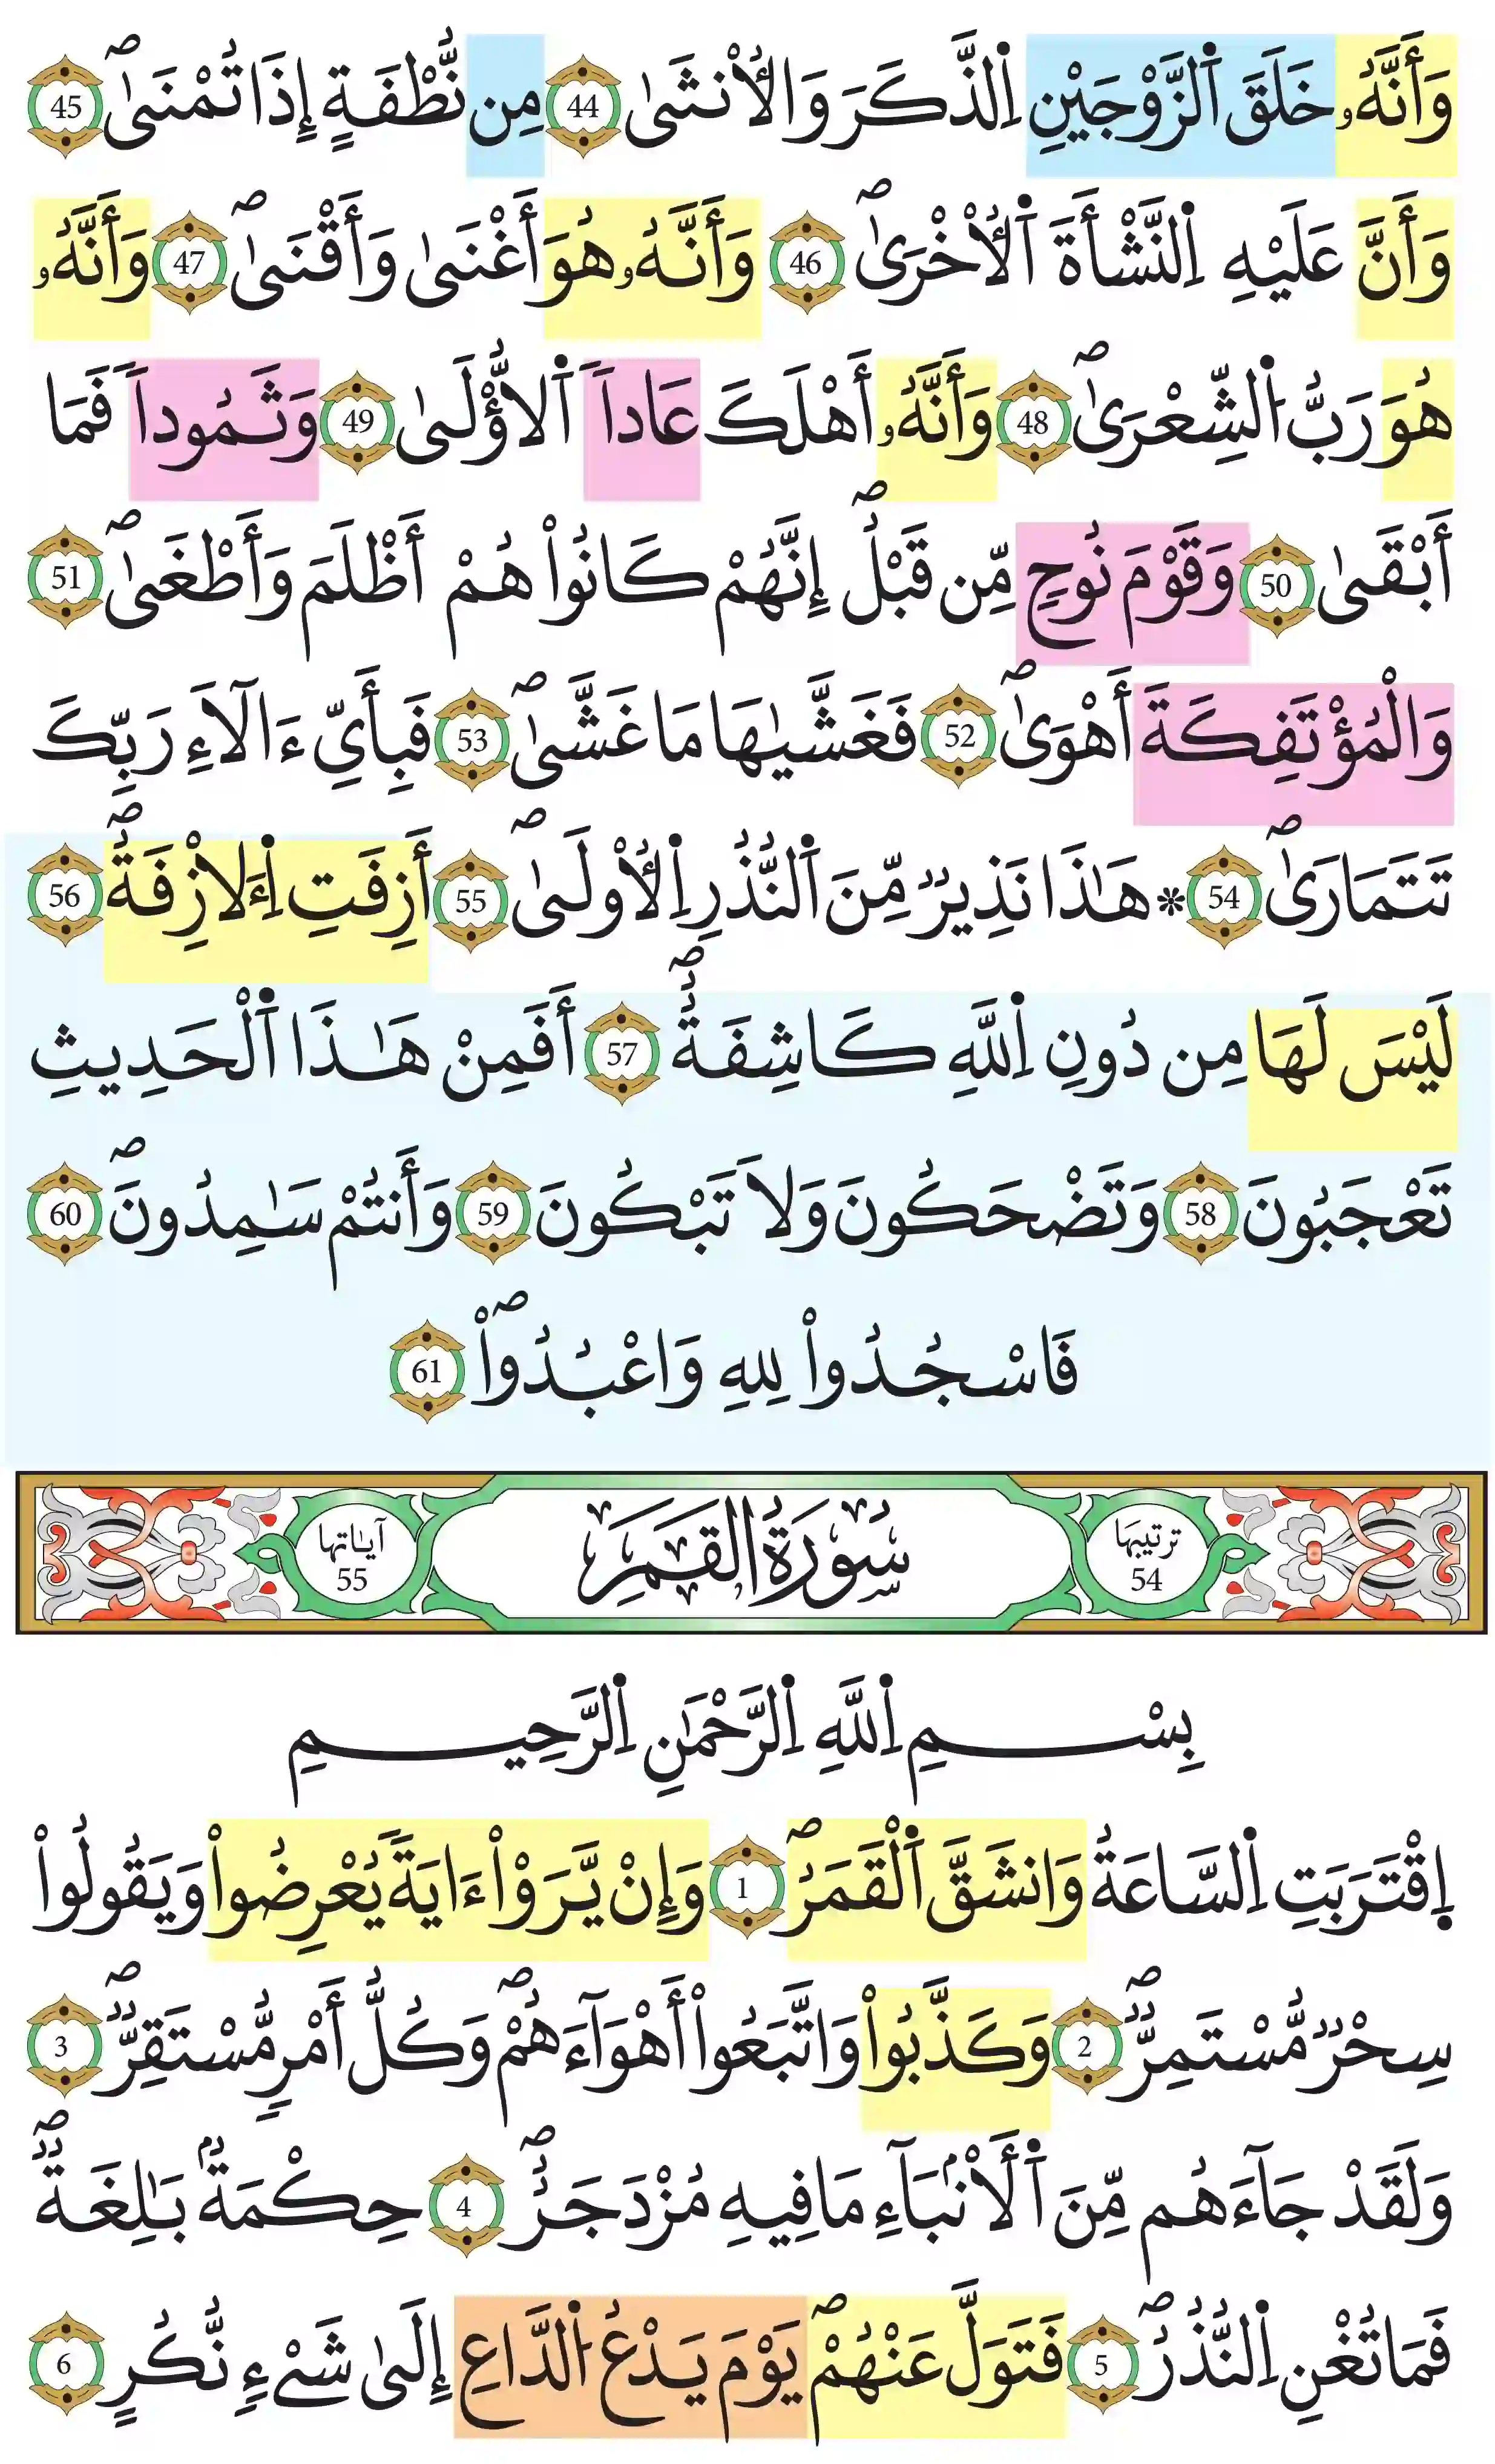 وَأَنَّهُۥ خَلَقَ اَ۬لزَّوْجَيْنِ اِ۬لذَّكَرَ وَالُانث۪ىٰ 44 مِن نُّطْفَةٍ إِذَا تُمْنَىٰۖ 45
وَأَنَّ عَلَيْهِ اِ۬لنَّشْأَةَ اَ۬لُاخْر۪ىٰۖ 46 وَأَنَّهُۥ هُوَ أَغْنَىٰ وَأَقْنَىٰۖ 47 وَأَنَّهُۥ
هُوَ رَبُّ اُ۬لشِّعْرَىٰۖ 48 وَأَنَّهُۥ أَهْلَكَ عَاداً اَ۬لُّاولَىٰ 49 وَثَمُوداً فَمَا
أَبْقَىٰ 50 وَقَوْمَ نُوحٍ مِّن قَبْلُۖ إِنَّهُمْ كَانُواْ هُمْ أَظْلَمَ وَأَطْغَىٰۖ 51
وَالْمُؤْتَفِكَةَ أَهْوَىٰۖ 52 فَغَشَّيٰهَا مَا غَشَّىٰۖ 53 فَبِأَيِّ ءَالَآءِ رَبِّكَ
تَتَمَارَىٰۖ 54 * هَٰذَا نَذِيرٌ مِّنَ اَ۬لنُّذُرِ اِ۬لُاولَىٰۖ 55 أَزِفَتِ اِ۬لَازِفَةُۖ 56
لَيْسَ لَهَا مِن دُونِ اِ۬للَّهِ كَاشِفَةٌۖ 57 أَفَمِنْ هَٰذَا اَ۬لْحَدِيثِ
تَعْجَبُونَ 58 وَتَضْحَكُونَ وَلَا تَبْكُونَ 59 وَأَنتُمْ سَٰمِدُونَۖ 60
فَاسْجُدُواْ لِلهِ وَاعْبُدُواْۖ 61
ترتيبها 54 سُورَةُ القَمَرِ آياتها 55
بِسْمِ اِ۬للَّهِ اِ۬لرَّحْمَٰنِ اِ۬لرَّحِيمِ
اِ۪قْتَرَبَتِ اِ۬لسَّاعَةُ وَانشَقَّ اَ۬لْقَمَرُۖ 1 وَإِنْ يَّرَوْاْ ءَايَةً يُعْرِضُواْ وَيَقُولُواْ
سِحْرٌ مُّسْتَمِرٌّۖ 2 وَكَذَّبُواْ وَاتَّبَعُواْ أَهْوَآءَهُمْۖ وَكُلُّ أَمْرٍ مُّسْتَقِرٌّۖ 3
وَلَقَدْ جَآءَهُم مِّنَ اَ۬لَانۢبَآءِ مَا فِيهِ مُزْدَجَرٌۖ 4 حِكْمَةُۢ بَٰلِغَةٌۖ
فَمَا تُغْنِ اِ۬لنُّذُرُۖ 5 فَتَوَلَّ عَنْهُمْۖ يَوْمَ يَدْعُ اُ۬لدَّاعِ إِلَىٰ شَيْءٍ نُّكُرٍ 6